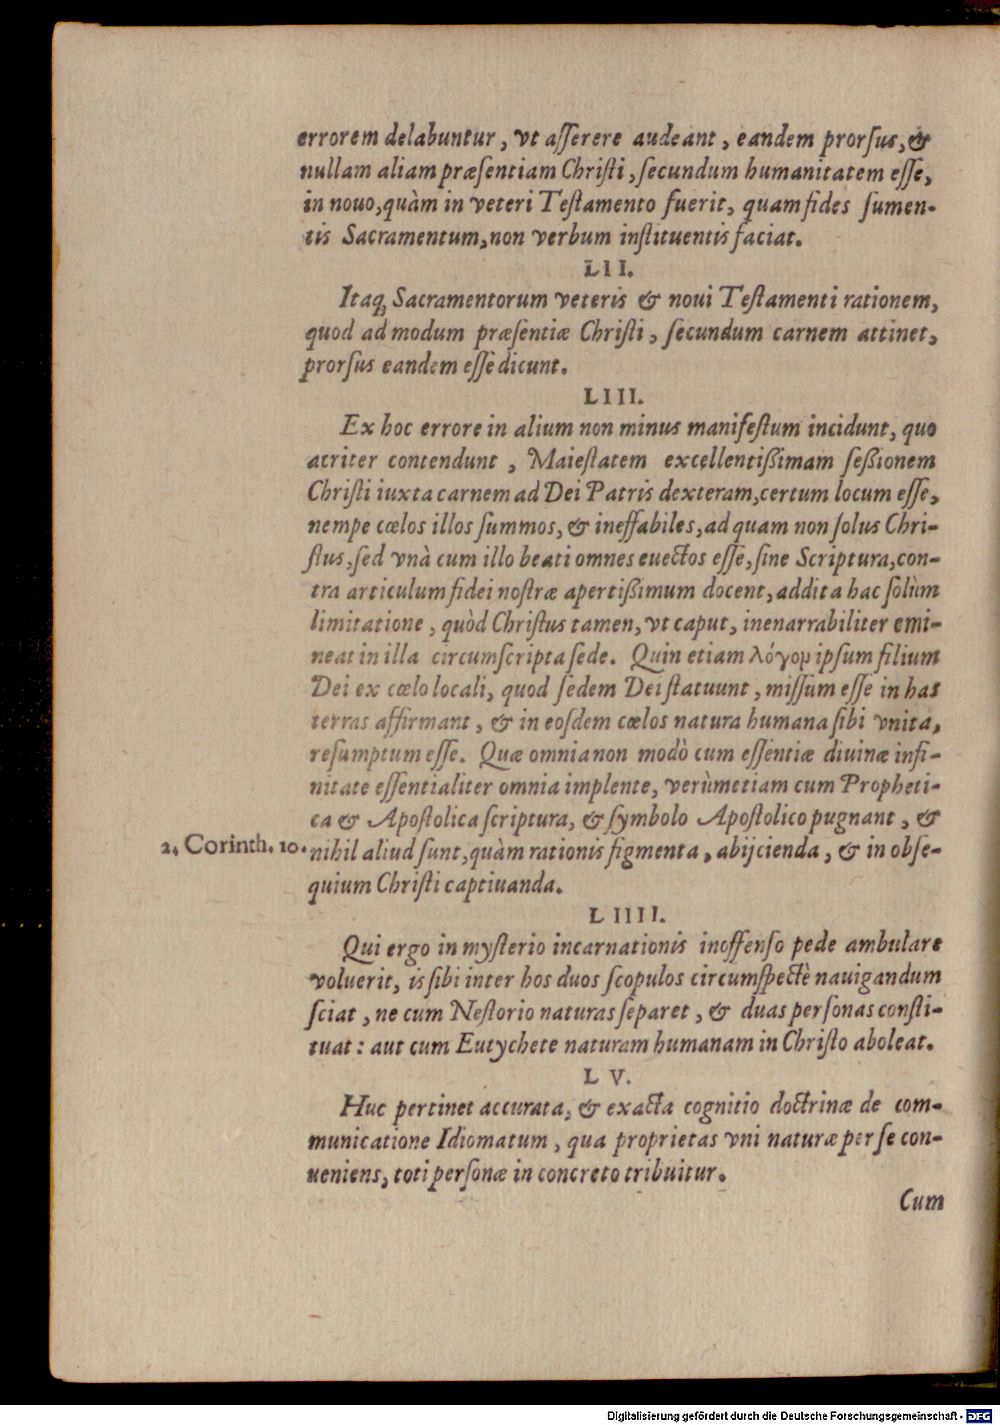 errorem delabuntur, vt aſſerere audeant, eandem prorſus, &
nullam aliam præſentiam Chriſti, ſecundum humanitatem eſſe,
in nouo, quàm in veteri Teſtamento fuerit, quam fides ſumen-
tis Sacramentum, non verbum inſtituentis faciat.
LII.
Itaq; Sacramentorum veteris & noui Teſtamenti rationem,
quod ad modum præſentiæ Chriſti, ſecundum carnem attinet,
prorſus eandem eſſe dicunt.
LIII.
Ex hoc errore in alium non minus manifeſtum incidunt, quo
acriter contendunt, Maieſtatem excellentißimam ſeßionem
Chriſti iuxta carnem ad Dei Patris dexteram, certum locum eſſe,
nempe cœlos illos ſummos, & ineffabiles, ad quam non ſolus Chri-
ſtus, ſed vnà cum illo beati omnes euectos eſſe, ſine Scriptura, con-
tra articulum fidei noſtræ apertißimum docent, addita hac ſolùm
limitatione, quòd Chriſtus tamen, vt caput, inenarrabiliter emi-
neat in illa circumſcripta ſede. Quin etiam λόγομ ipſum filium
Dei ex cœlo locali, quod ſedem Dei ſtatuunt, miſſum eſſe in has
terras affirmant, & in eoſdem cœlos natura humana ſibi vnita,
reſumptum eſſe. Quæ omnia non modò cum eſſentiæ diuinæ infi-
nitate eſſentialiter omnia implente, verùm etiam cum Propheti-
ca & Apoſtolica ſcriptura, & ſymbolo Apoſtolico pugnant, &
2. Corinth. 10. nihil aliud ſunt, quàm rationis figmenta, abijcienda, & in obſe-
quium Chriſti captiuanda.
LIIII.
Qui ergo in myſterio incarnationis inoffenſo pede ambulare
voluerit, is ſibi inter hos duos ſcopulos circumſpectè nauigandum
ſciat, ne cum Neſtorio naturas ſeparet, & duas perſonas conſti-
tuat: aut cum Eutychete naturam humanam in Chriſto aboleat.
LV.
Huc pertinet accurata, & exacta cognitio doctrinæ de com-
municatione Idiomatum, qua proprietas vni naturæ per ſe con-
ueniens, toti perſonæ in concreto tribuitur.
Cum
Digitalisierung gefördert durch die Deutsche Forschungsgemeinschaft - DFG